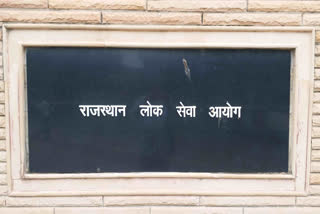 राजस्थान लोक सेवा आयोग